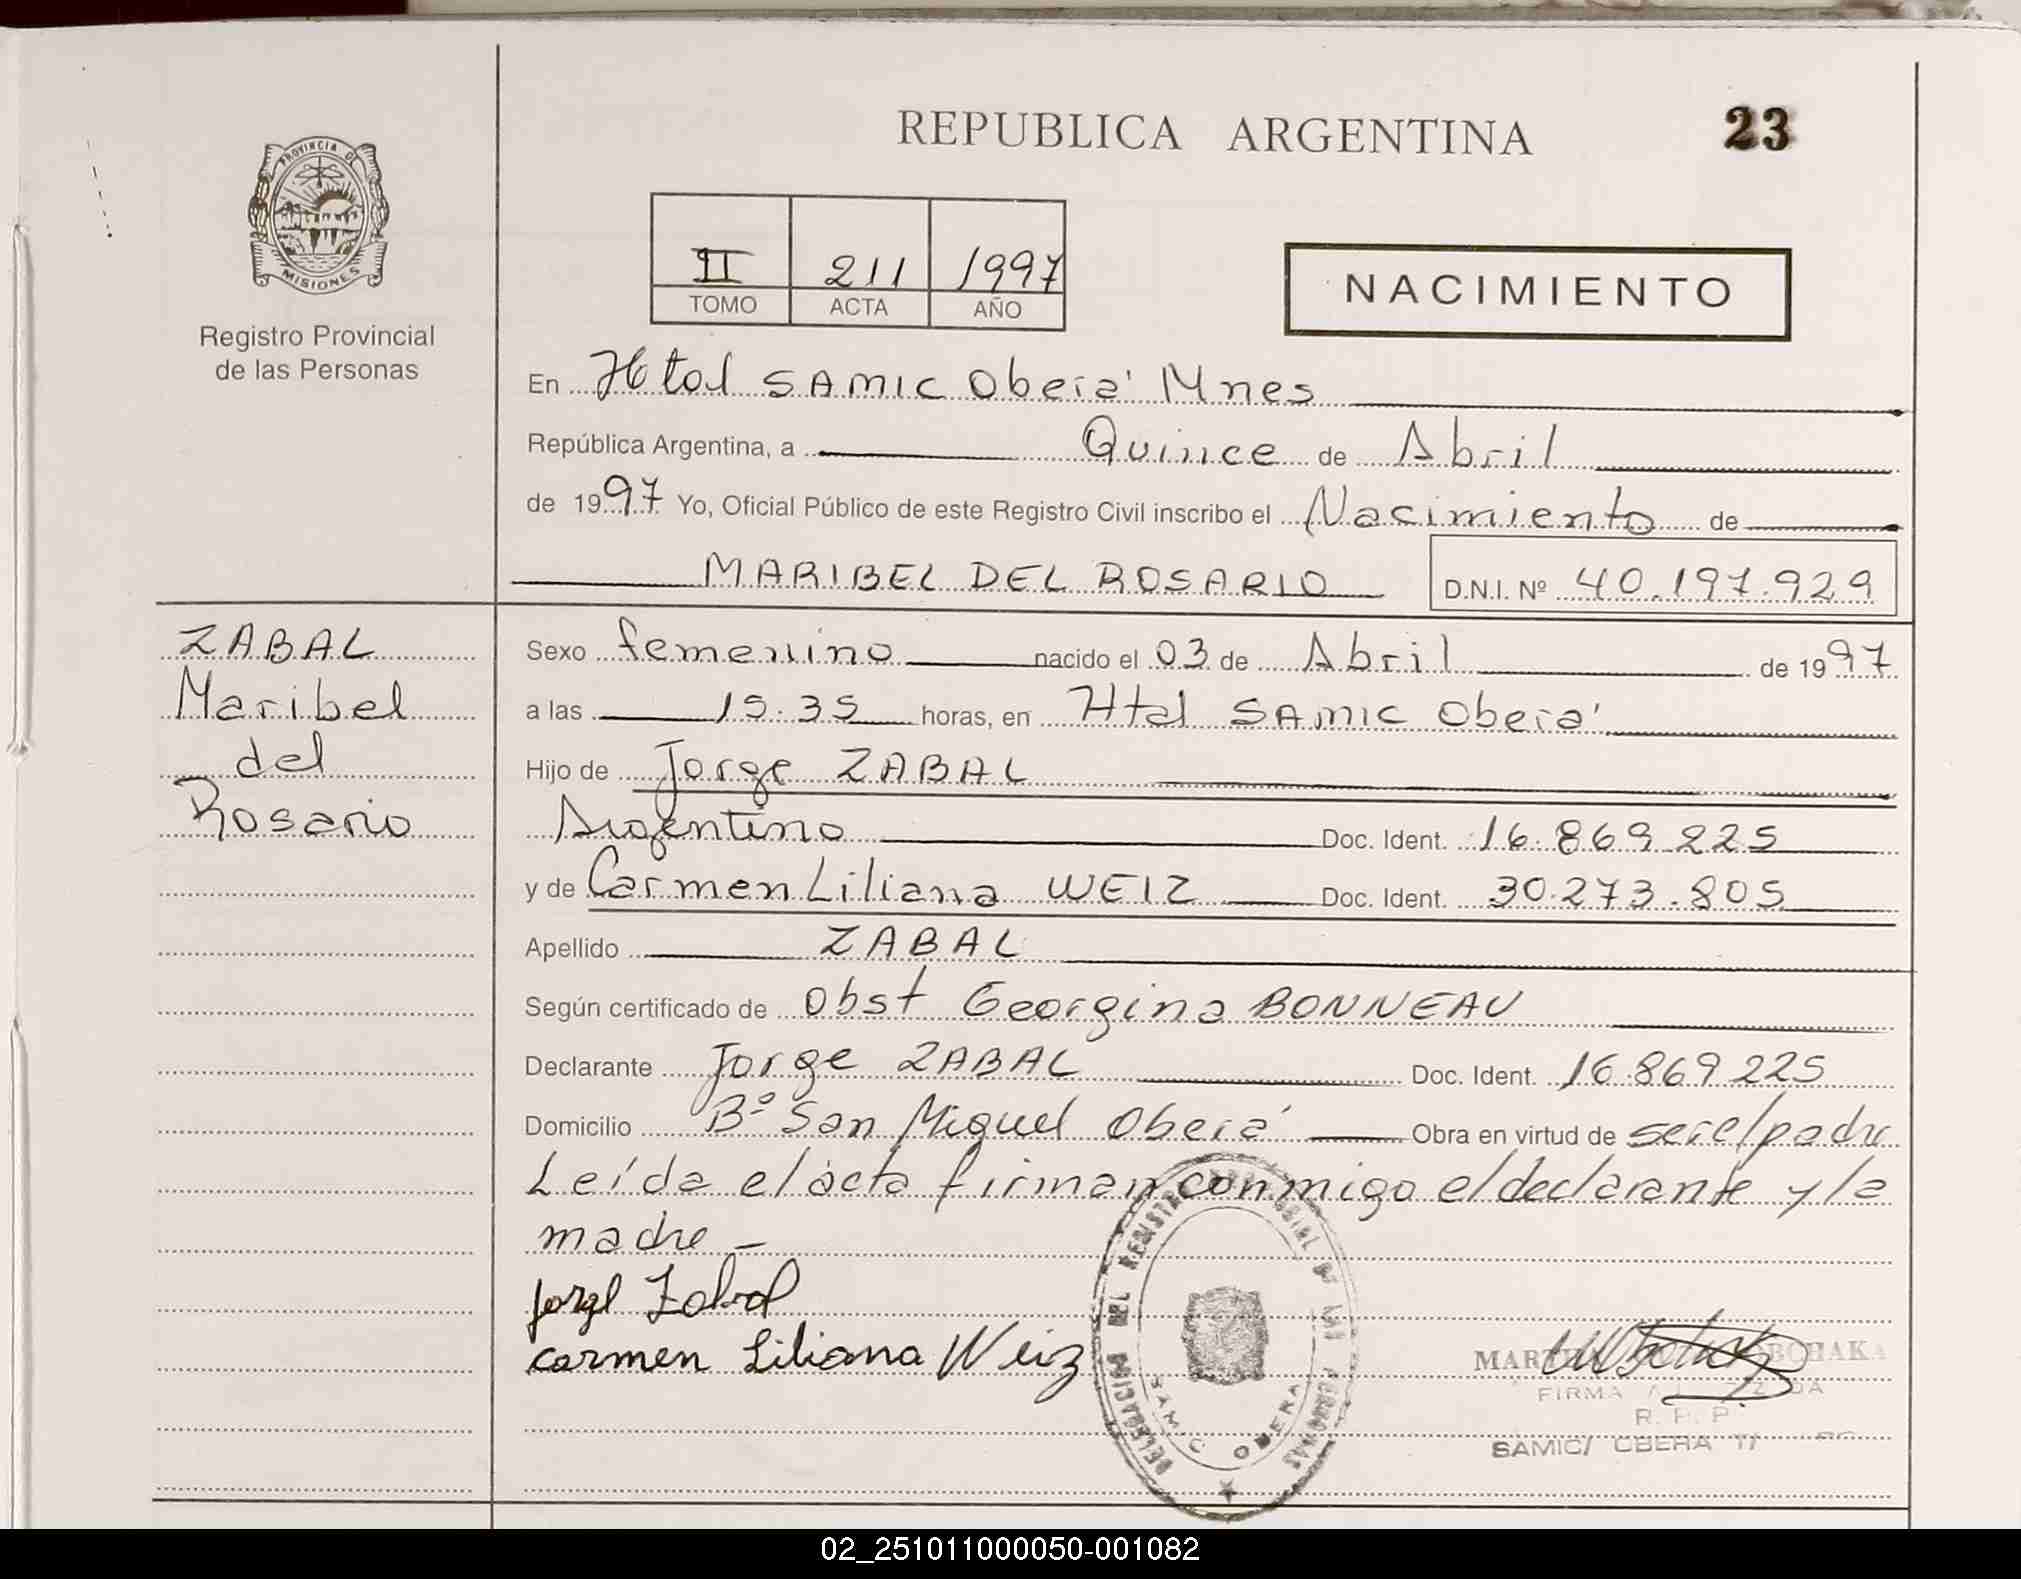 REPUBLICA ARGENTINA
23
PROVINCIA DE
MISIONES
Registro Provincial
de las Personas
II 211 1997
TOMO ACTA AÑO
NACIMIENTO
En Htal SAMIC Oberá Mnes
República Argentina, a Quince de Abril
de 1997 Yo, Oficial Público de este Registro Civil inscribo el Nacimiento de
MARIBEL DEL ROSARIO D.N.I. Nº 40.197.929
ZABAL
Maribel
del
Rosario
Sexo femenino nacido el 03 de Abril de 1997
a las 15.35 horas, en Htal SAMIC Oberá
Hijo de Jorge ZABAL
Argentino Doc. Ident. 16.869.225
y de Carmen Liliana WEIZ Doc. Ident. 30.273.805
Apellido ZABAL
Según certificado de Obst Georgina BONNEAU
Declarante Jorge ZABAL Doc. Ident. 16869225
Domicilio Bº San Miguel Oberá Obra en virtud de ser el padre
Leída el acta firman conmigo el declarante y la
madre —
Jorge Zabal
Carmen Liliana Weiz
DELEGACION DEL REGISTRO PROVINCIAL DE LAS PERSONAS
SAMIC OBERA
FIRMA
R. P. P.
SAMIC/ OBERA
02_251011000050-001082